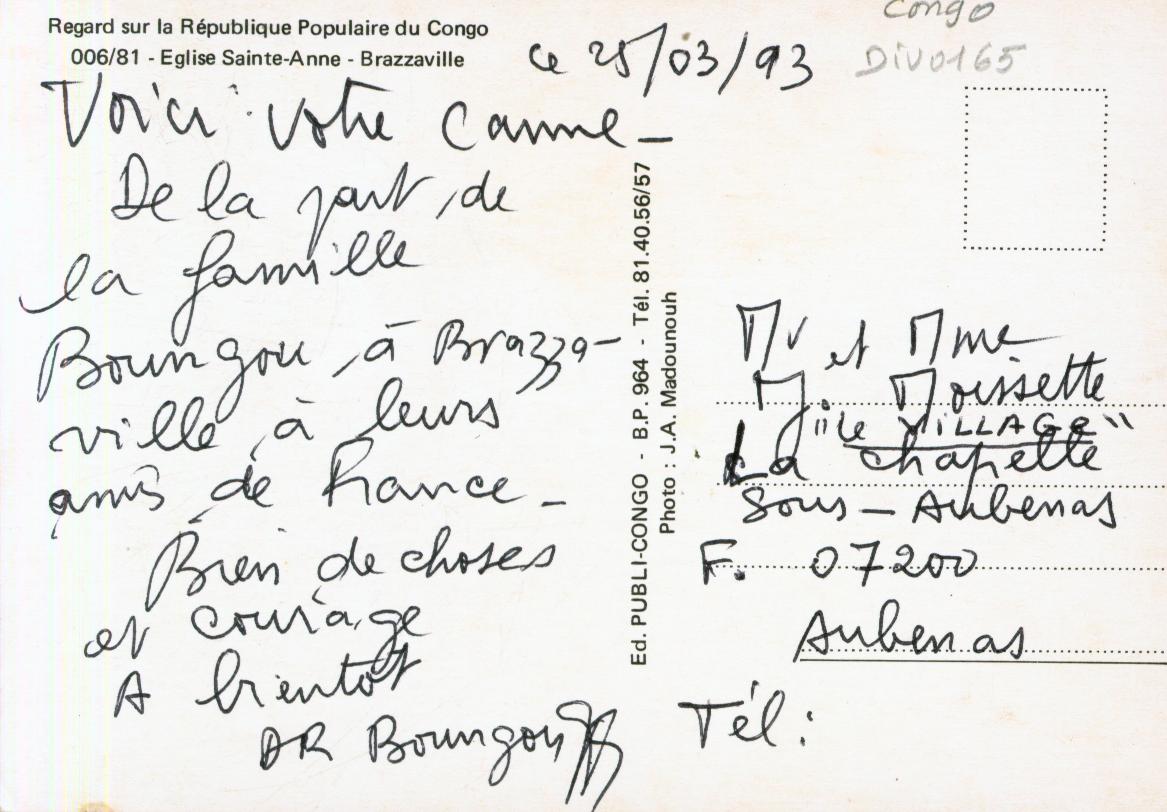 Regard sur la République Populaire du Congo
006/81 - Eglise Sainte-Anne - Brazzaville
ce 25/03/93
Congo
DIV0165
Voici votre canne -
De la part de
la famille
Boungou, à Brazza-
ville à leurs
amis de France -
Bien de choses
et courage
A bientôt
DR Boungou
Ed. PUBLI-CONGO - B.P. 964 - Tél. 81.40.56/57
Photo : J.A. Madounouh
Mr et Mme
Moissette
"le VILLAGE"
La chapelle
Sous - Aubenas
F. 07200
Aubenas
Tél :